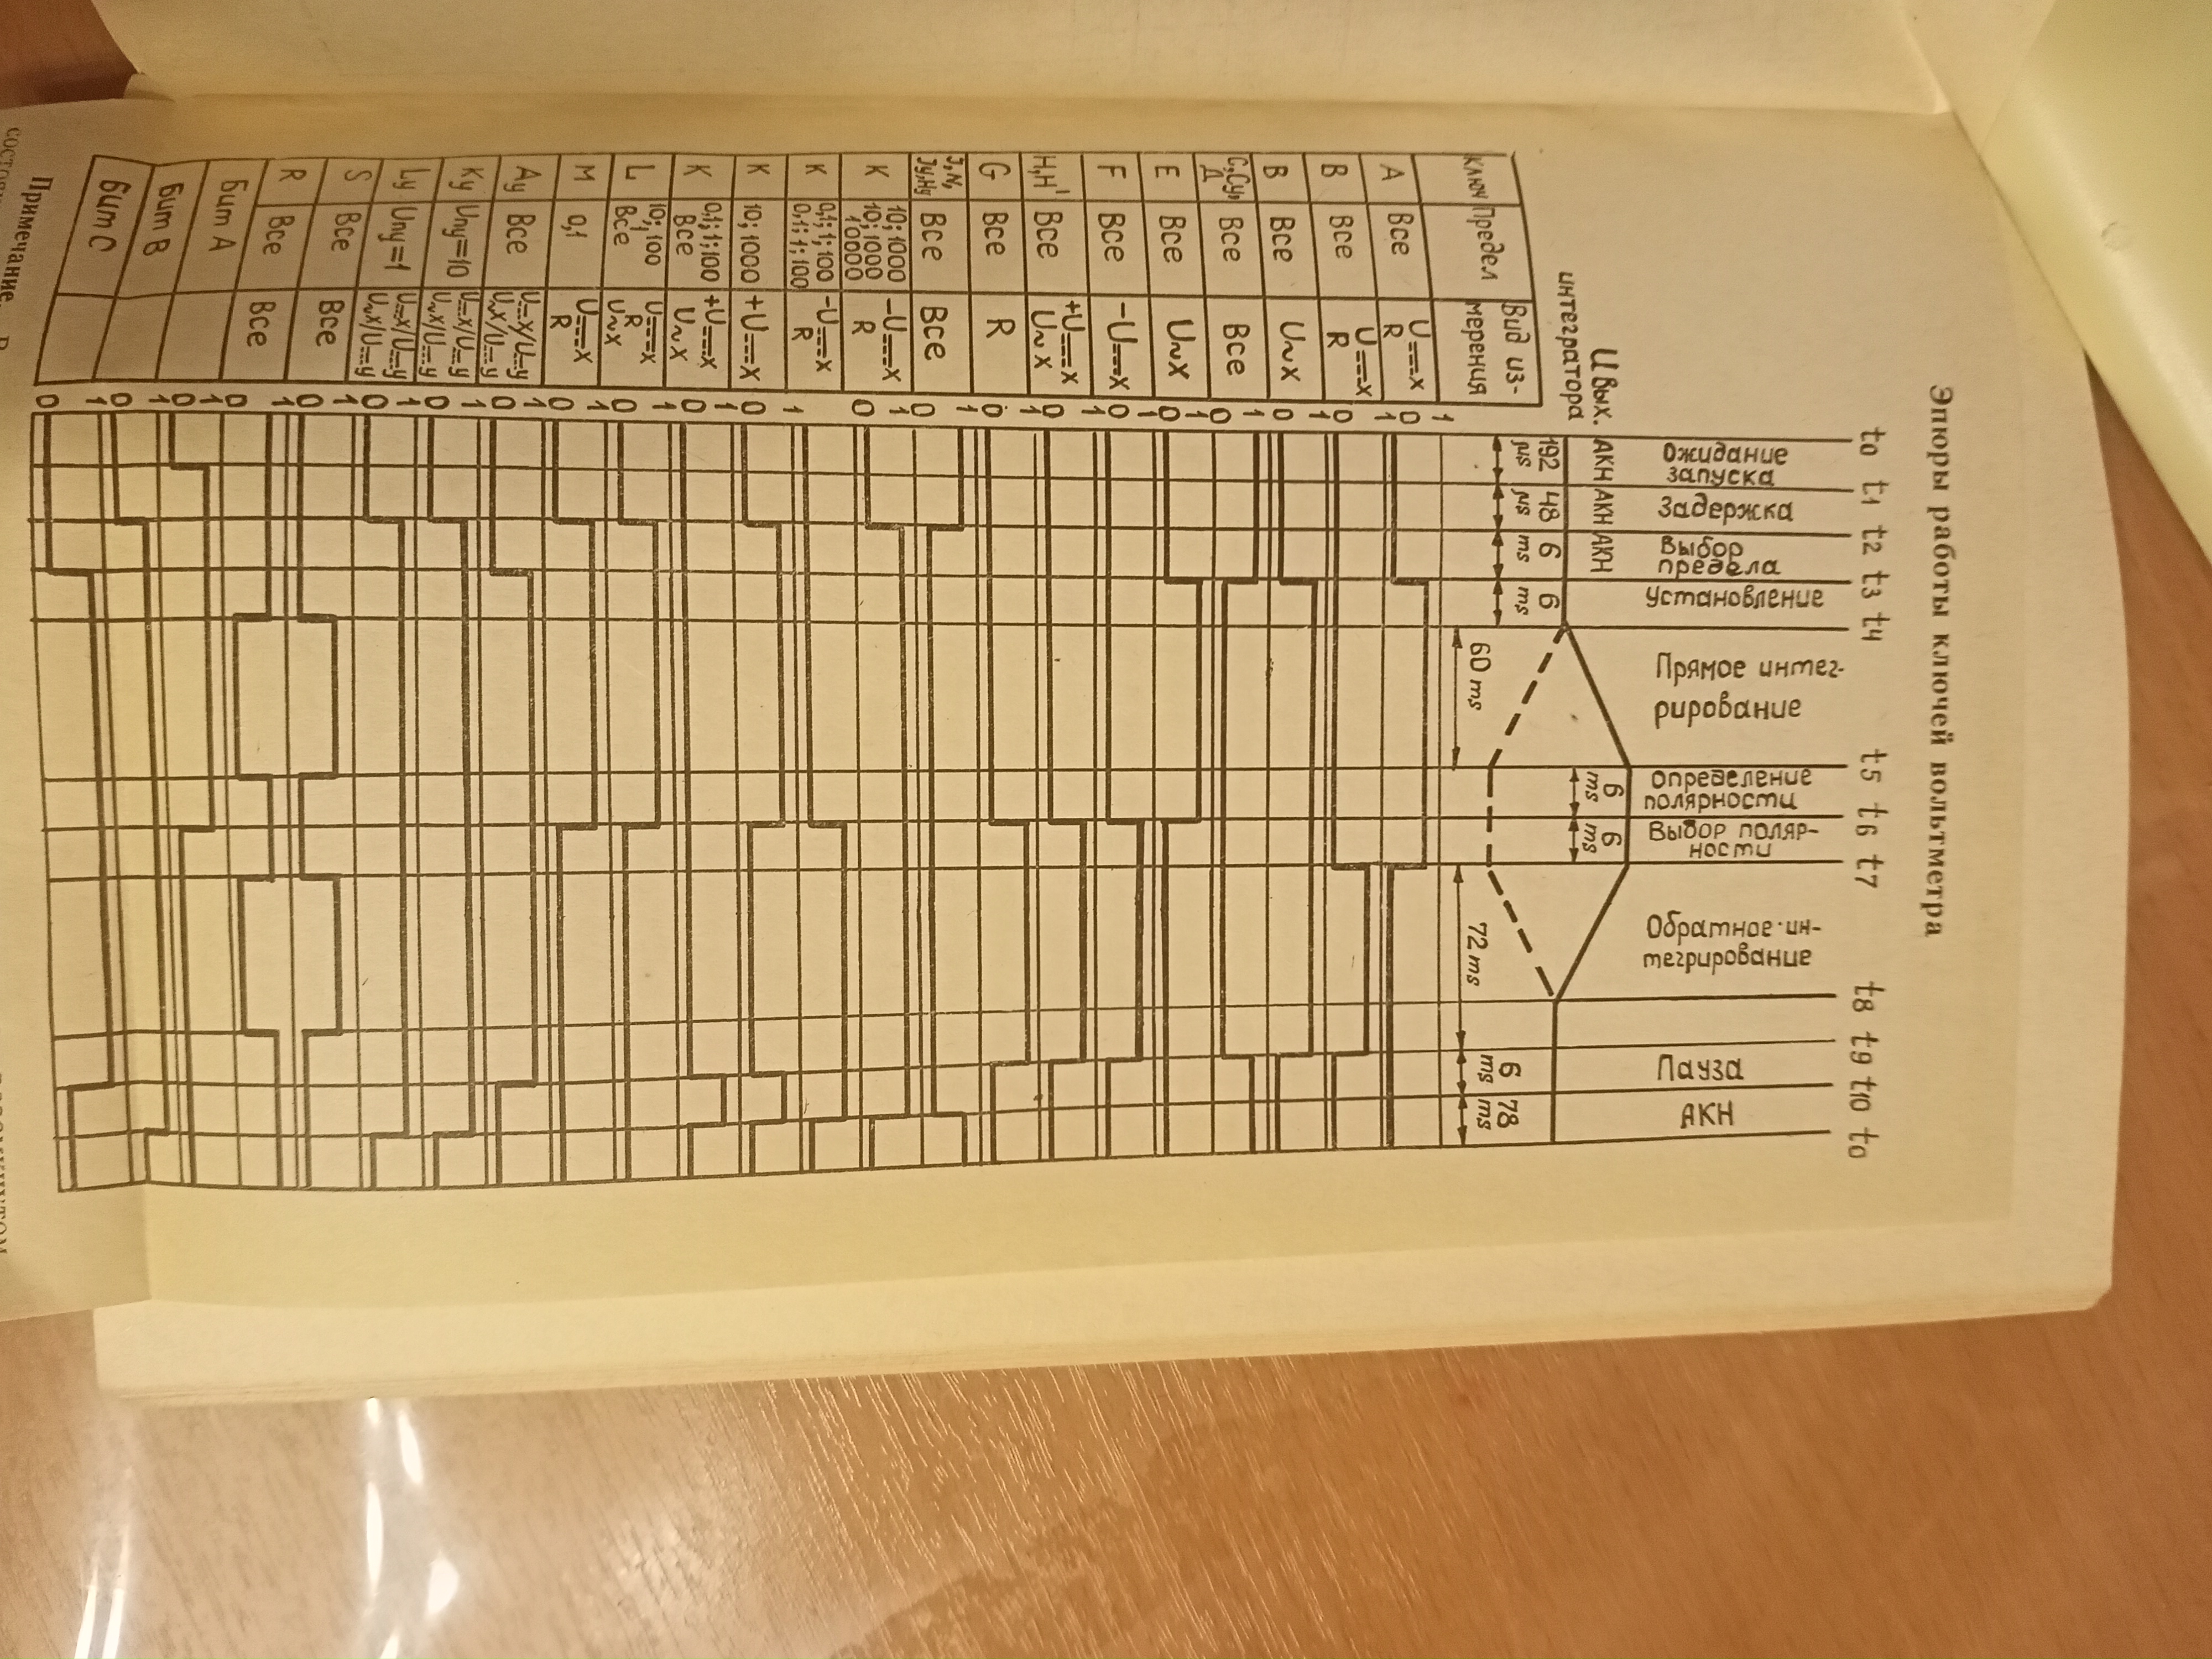 Эпюры работы ключей вольтметра
t0 t1 t2 t3 t4 t5 t6 t7 t8 t9 t10 t0
Ожидание
запуска
Задержка
Выбор
предела
Установление
Прямое интег-
рирование
Определение
полярности
Выбор поляр-
ности
Обратное ин-
тегрирование
Пауза
АКН
U вых.
интегратора
АКН АКН АКН
192
μs
48
μs
6
ms
6
ms
60 ms
6
ms
6
ms
72 ms
6
ms
78
ms
Ключ Предел Вид из-
мерения
A Все U=x
R
B Все U=x
R
B Все U~x
C,Cy,
Д Все Все
E Все U~x
F Все -U=x
H,H' Все +U=x
U~x
G Все R
J,N,
Jy,Ny Все Все
K 10; 1000
10; 1000
10000 -U=x
R
K 0,1; 1; 100
0,1; 1; 100 -U=x
R
K 10; 1000 +U=x
K 0,1; 1; 100
Все +U=x
U~x
L 10; 100
Все U=x
R
U~x
M 0,1 U=x
R
Ay Все U=x/U=y
U~x/U=y
Ky Uпу=10 U=x/U=y
U~x/U=y
Ly Uпу=1 U=x/U=y
U~x/U=y
S Все Все
R Все Все
Бит A
Бит B
Бит C
1
0
1
0
1
0
1
0
1
0
1
0
1
0
1
0
1
0
1
0
1
0
1
0
1
0
1
0
1
0
1
0
1
0
1
0
1
0
1
0
1
0
1
0
Примечание.